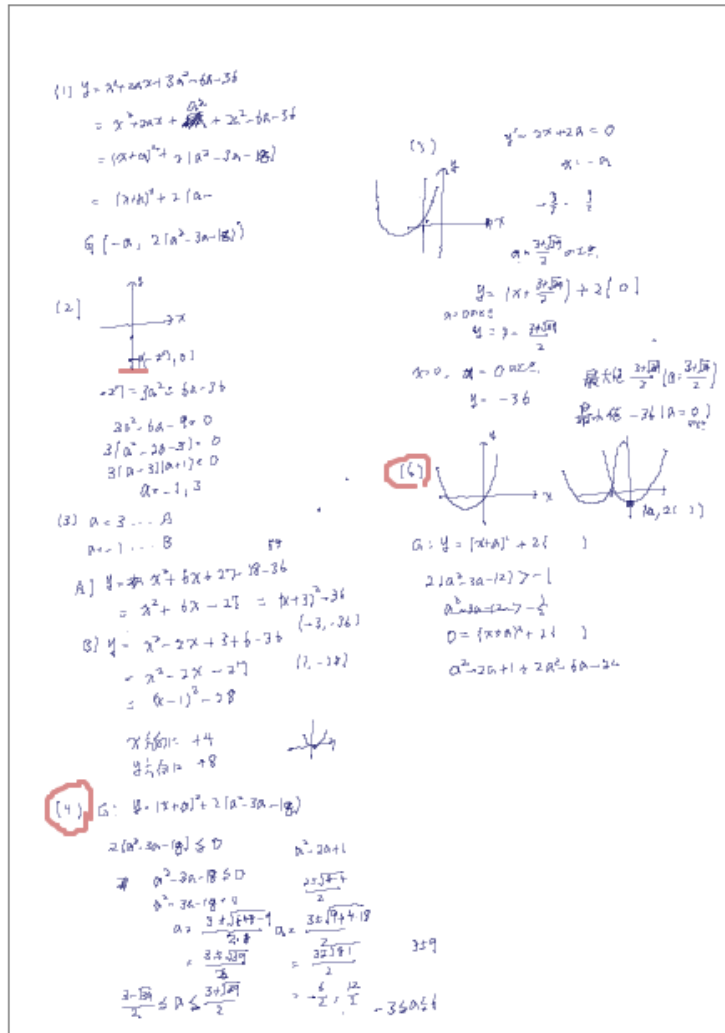 (1) y = x²+2ax+3a²-6a-36
= x²+2ax+a²+2a²-6a-36
= (x+a)²+2(a²-3a-18)
= (x+a)²+2(a-
G(-a, 2(a²-3a-18))
(2)
y
x
-27 = 3a²-6a-36
3a²-6a-9=0
3(a²-2a-3)=0
3(a-3)(a+1)=0
a=-1, 3
(3) a=3 … A
a=-1 … B
A) y = x²+6x+27-18-36
= x²+6x-27 = (x+3)²-36
(-3, -36)
B) y = x²-2x+3+6-36
= x²-2x-27
= (x-1)²-28
x方向に +4
y方向に +8
(4) G: y=(x+a)²+2(a²-3a-18)
2(a²-3a-18)≦0
a²-2a+1
a²-3a-18≦0
a²-3a-18=0
a= 3±√(9+4·18) / 2
= 3±√39 / 2
= 3±√81 / 2
3±9
(3-√39)/2 ≦ a ≦ (3+√39)/2
= -6/2, 12/2
-3≦a≦6
(5)
y
x
y'=2x+2a=0
x=-a
a=(3+√39)/2 のとき,
y=(x+(3+√39)/2)+2{0}
a=0のとき
x=0, a=0のとき,
y=-36
最大値 (3+√39)/2 (a=(3+√39)/2)
最小値 -36 (a=0)
(6)
y
x
G: y=(x+a)²+2( )
2(a²-3a-12)>-1
a²-3a-12>-1/2
0=(x+a)²+2( )
a²-2a+1+2a²-6a-24